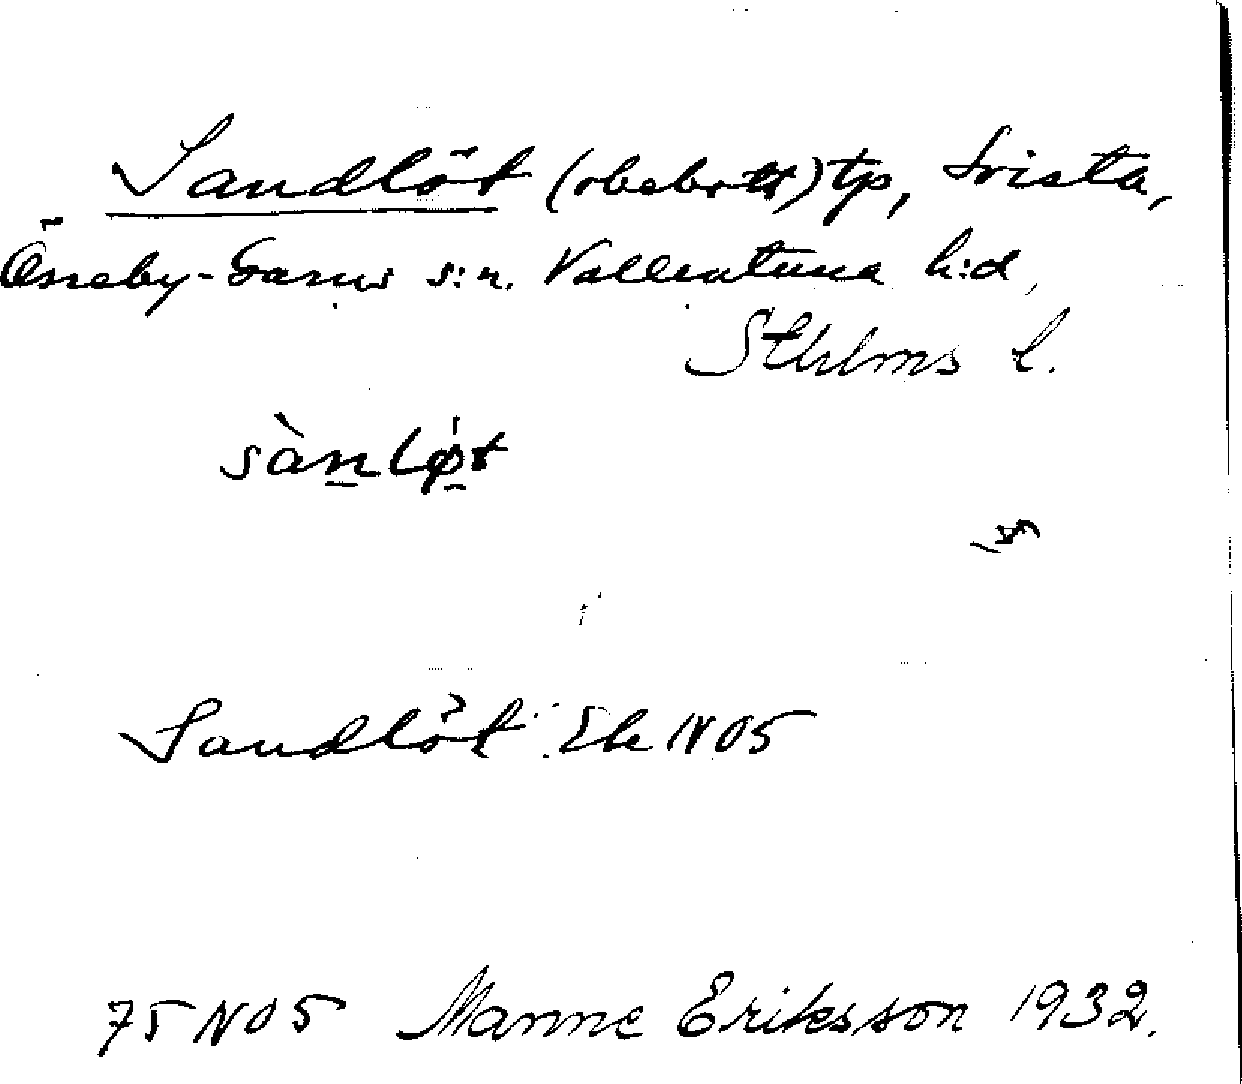 Sandlöt (obebott) tp, Svista,
Össeby-Garns s:n. Vallentuna h:d,
Sthlms L.
sànlø̀t
Sandlöt Ek NO5
75 NO5 Manne Eriksson 1932.